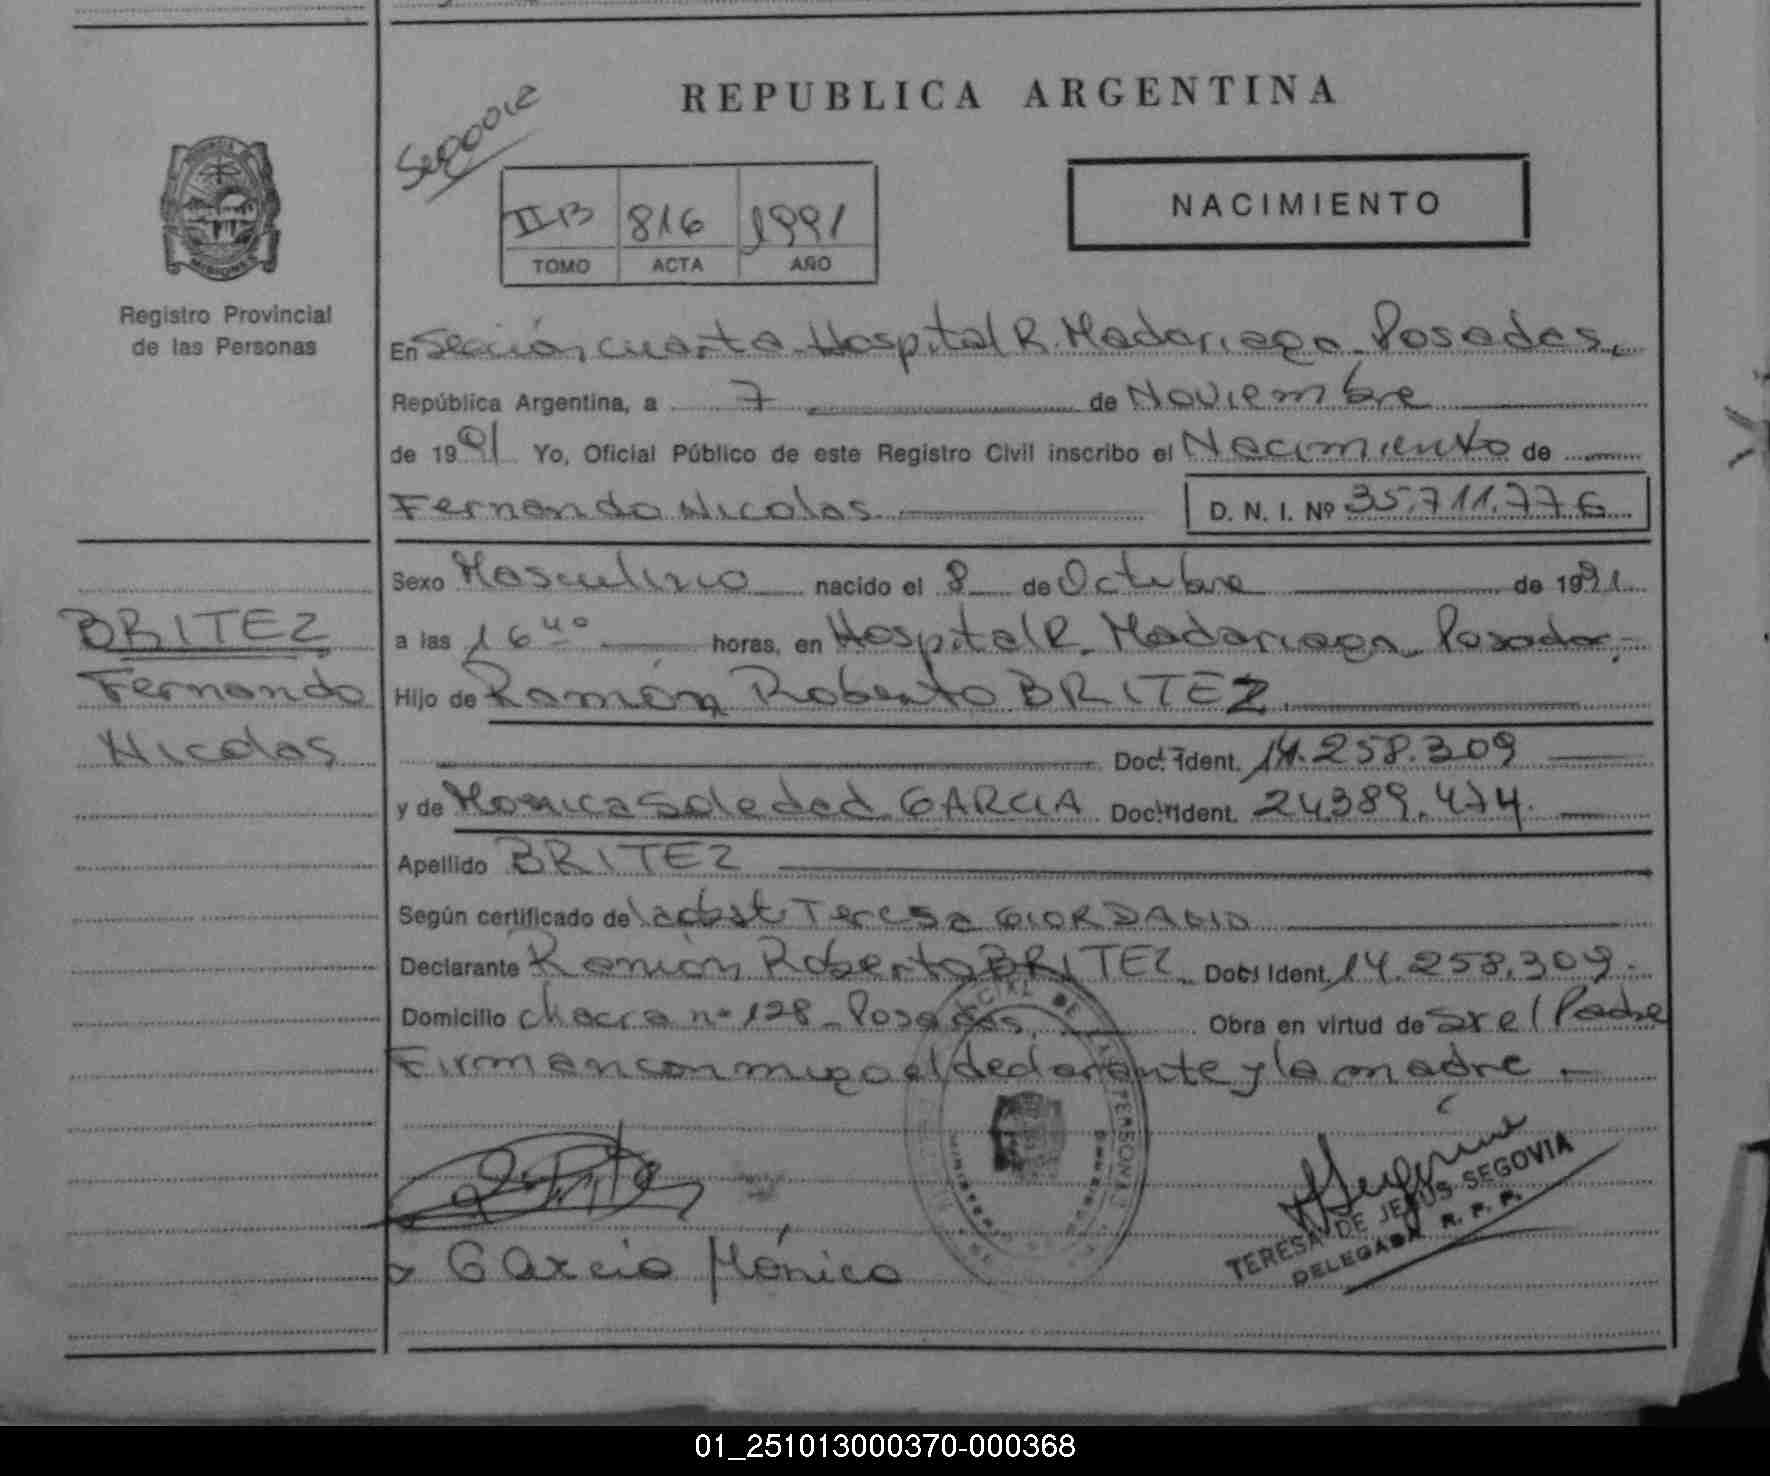 REPUBLICA ARGENTINA
NACIMIENTO
IIB 816 1991
TOMO ACTA AÑO
MISIONES
Registro Provincial
de las Personas
En Sección cuarta Hospital R. Madariaga Posadas,
República Argentina, a 7 de Noviembre
de 1991 Yo, Oficial Público de este Registro Civil inscribo el Nacimiento de
Fernando Nicolas D. N. I. Nº 35.711.776
Sexo Masculino nacido el 8 de Octubre de 1991
a las 16 40 horas, en Hospital R. Madariaga Posadas,
Hijo de Ramón Roberto BRITEZ
Doc. Ident. 14.258.309
y de Monica Soledad GARCIA Doc. Ident. 24389.474.
Apellido BRITEZ
Según certificado de la obst Teresa GIORDANO
Declarante Ramón Roberto BRITEZ Doc. Ident. 14.258.309.
Domicilio chacra nº 128 - Posadas, Obra en virtud de Sr el Padre
Firman conmigo el declarante y la madre -
BRITEZ
Fernando
Nicolas
x Garcia Mónica
TERESA DE JESUS SEGOVIA
DELEGADA R. P. P.
01_251013000370-000368